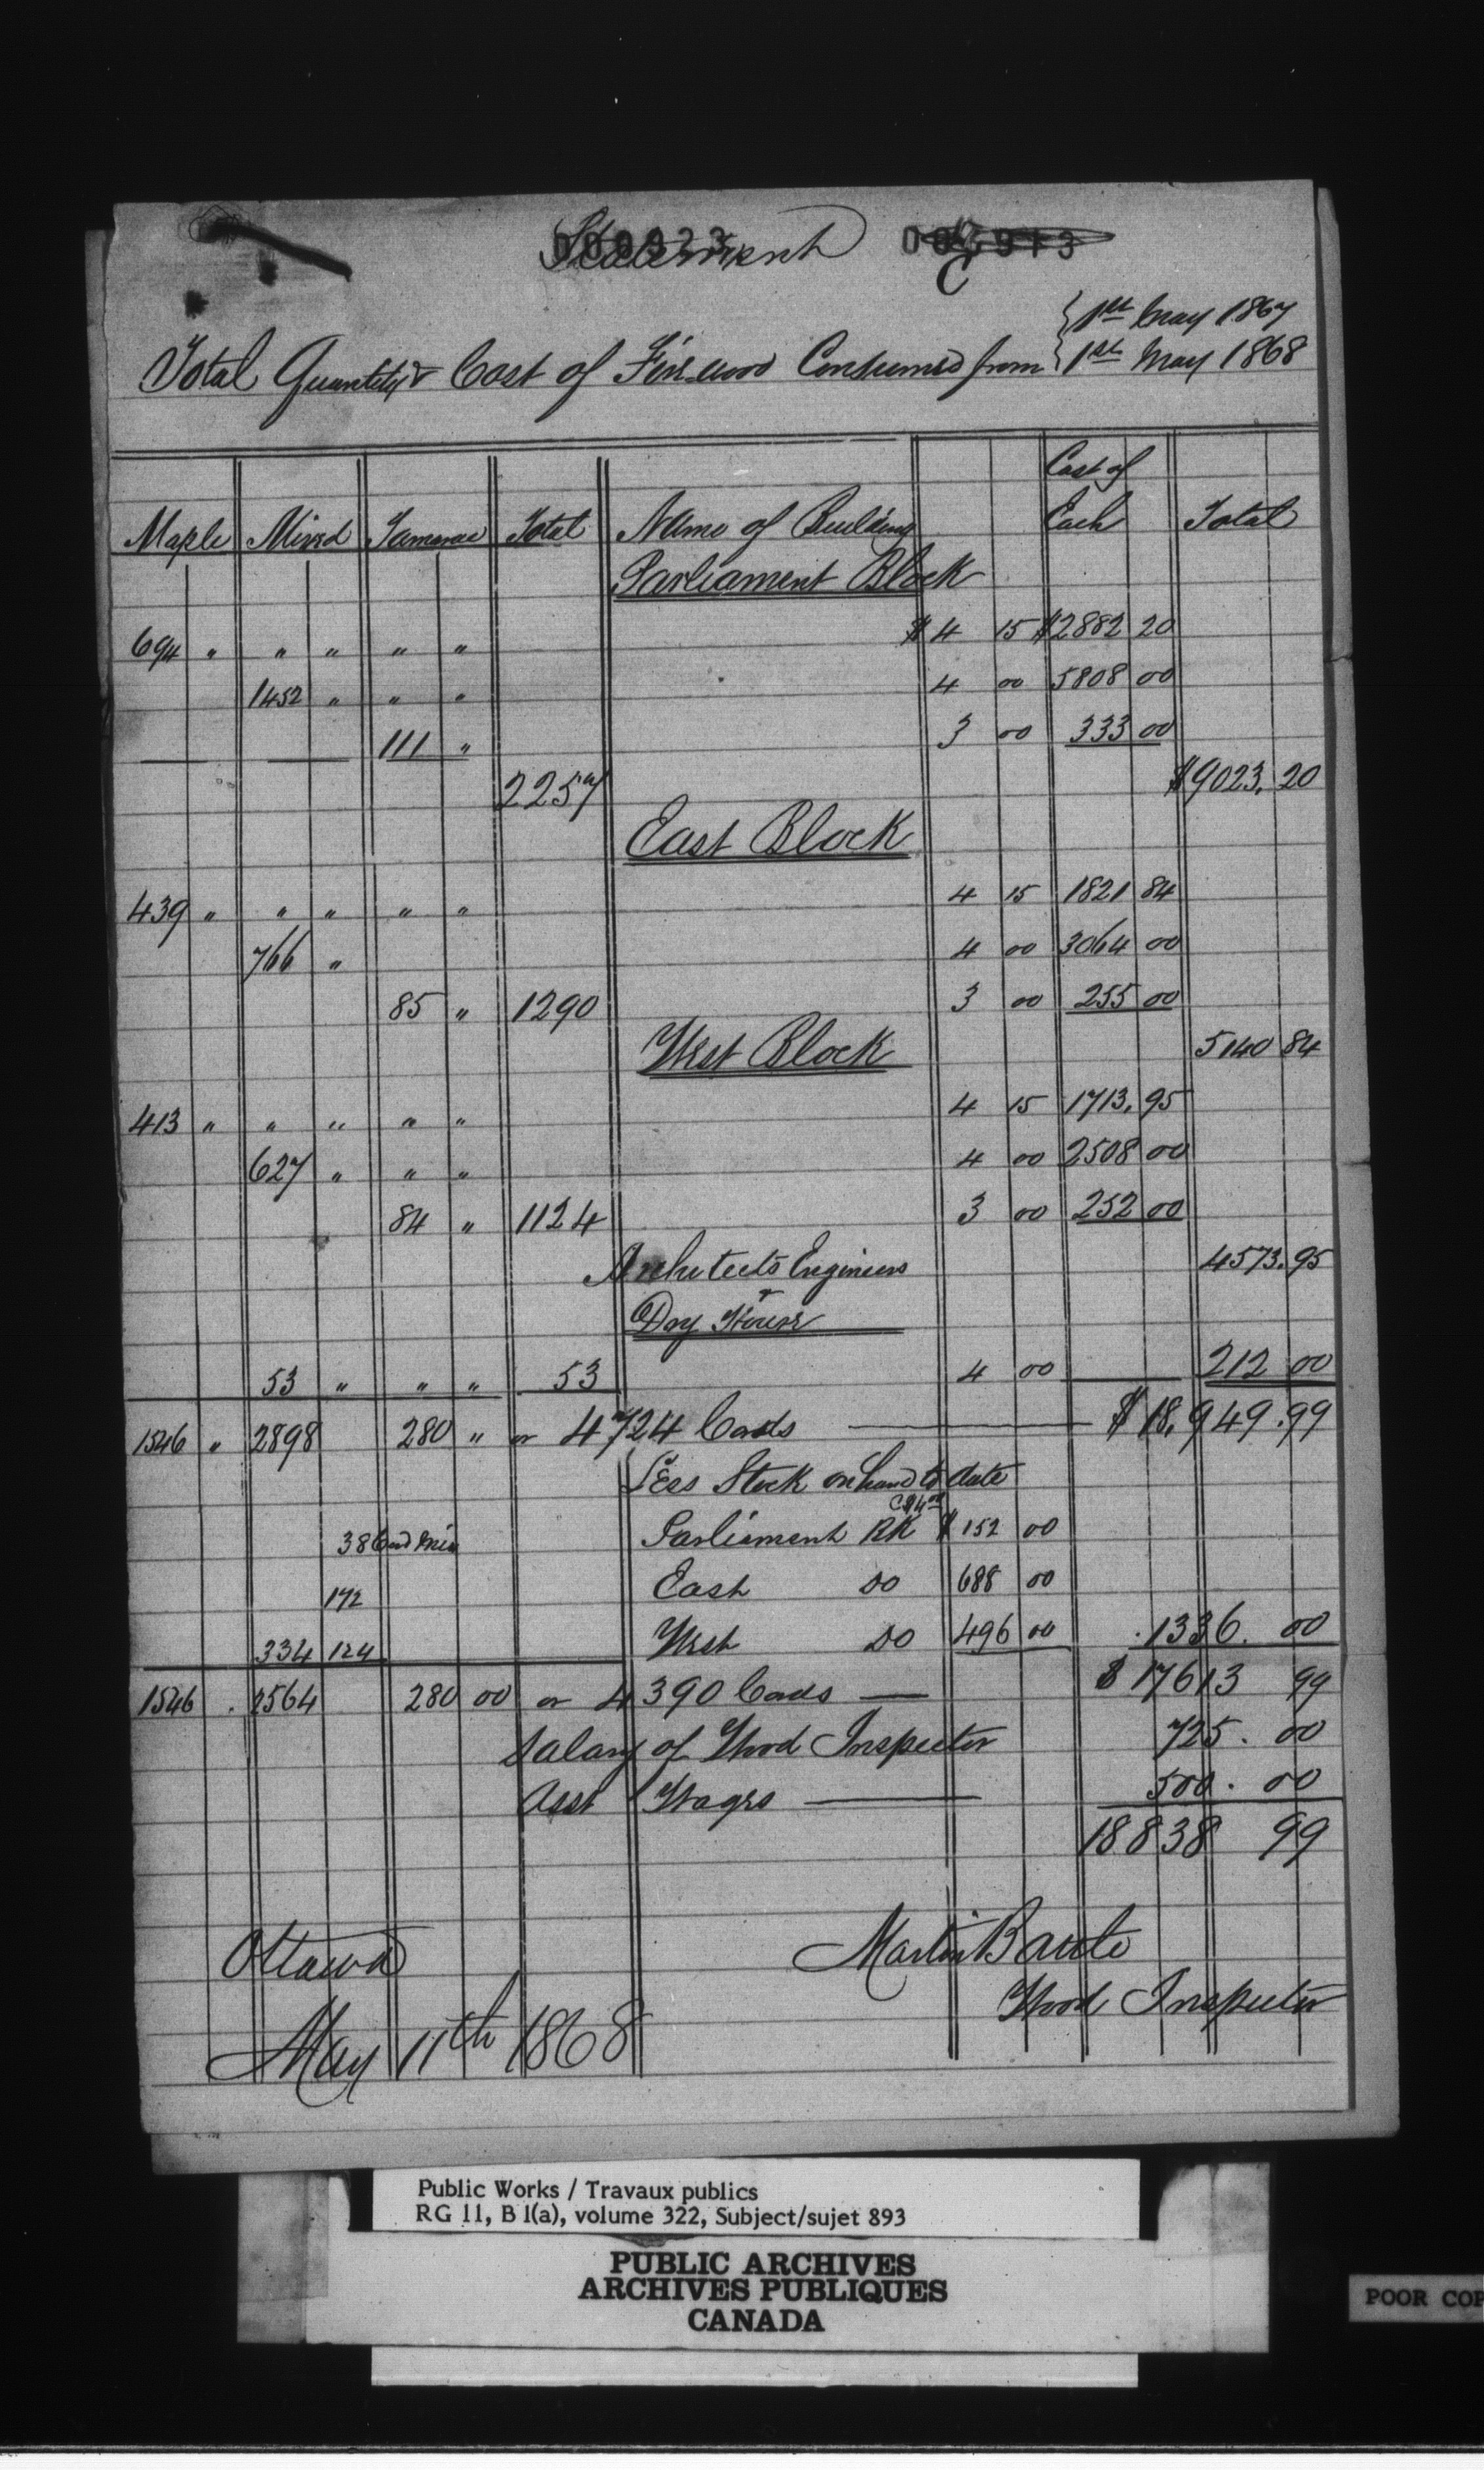 Statement
000923
C
1st May 1867
Total Quantity & Cost of Firewood Consumed from 1st May 1868
Cost of
Maple Mixed Tamarac Total Name of Building Each Total
Parliament Block
694 " " " " " $4 15 $2882 20
1452 " " " 4 00 5808 00
111 " 3 00 333 00
2257 $9023. 20
East Block
439 " " " " " 4 15 1821 84
766 " 4 00 3064 00
85 " 1290 3 00 255 00
West Block 5140 84
413 " " " " " 4 15 1713. 95
627 " " " 4 00 2508 00
84 " 1124 3 00 252 00
Architects Engineers 4573. 95
&
Day House
53 " " " 53 4 00 212 00
1546 " 2898 280 " or 4724 Cords $18,949.99
Less Stock on hand to date
38 Parliament BK $152 00
172 East Do 688 00
334 124 West Do 496 00 1336. 00
1546 . 2564 280 00 or 4390 Cords $17613 99
Salary of Wood Inspector 725. 00
Asst Wages 500. 00
18838 99
Ottawa Martin
Wood Inspector
May 11th 1868
Public Works / Travaux publics
RG 11, B 1(a), volume 322, Subject/sujet 893
PUBLIC ARCHIVES
ARCHIVES PUBLIQUES
CANADA
POOR COP